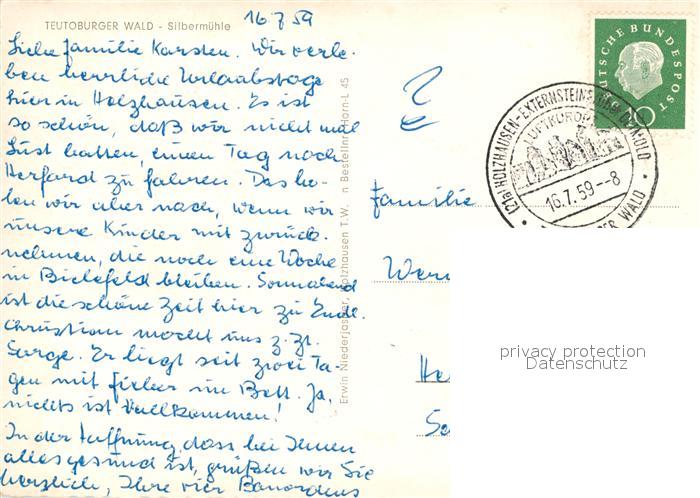 TEUTOBURGER WALD - Silbermühle
16.7.59
Liebe Familie Karsten. Wir verle-
ben herrliche Urlaubstage
hier in Holzhausen. Es ist
so schön, daß wir nicht mal
Lust hatten, einen Tag nach
Herford zu fahren. Das ho-
len wir aber nach, wenn wir
unsere Kinder mit zurück
nehmen, die noch eine Woche
in Bielefeld bleiben. Sonnabend
ist die schöne Zeit hier zu Ende.
Christian macht uns z. Zt.
Sorge. Er liegt seit zwei Ta-
gen mit Fieber im Bett. Ja,
nichts ist vollkommen!
In der Hoffnung, dass bei Ihnen
alles gesund ist, grüßen wir Sie
herzlich, Ihre vier
Erwin Niederjasper, Holzhausen T.W.
n Bestellnr. Horn-L 45
DEUTSCHE BUNDESPOST
10
(21a) HOLZHAUSEN-EXTERNSTEINE ÜBER DETMOLD
LUFTKURORT
16.7.59--8
WALD
Familie
Wern
He
So
privacy protection
Datenschutz